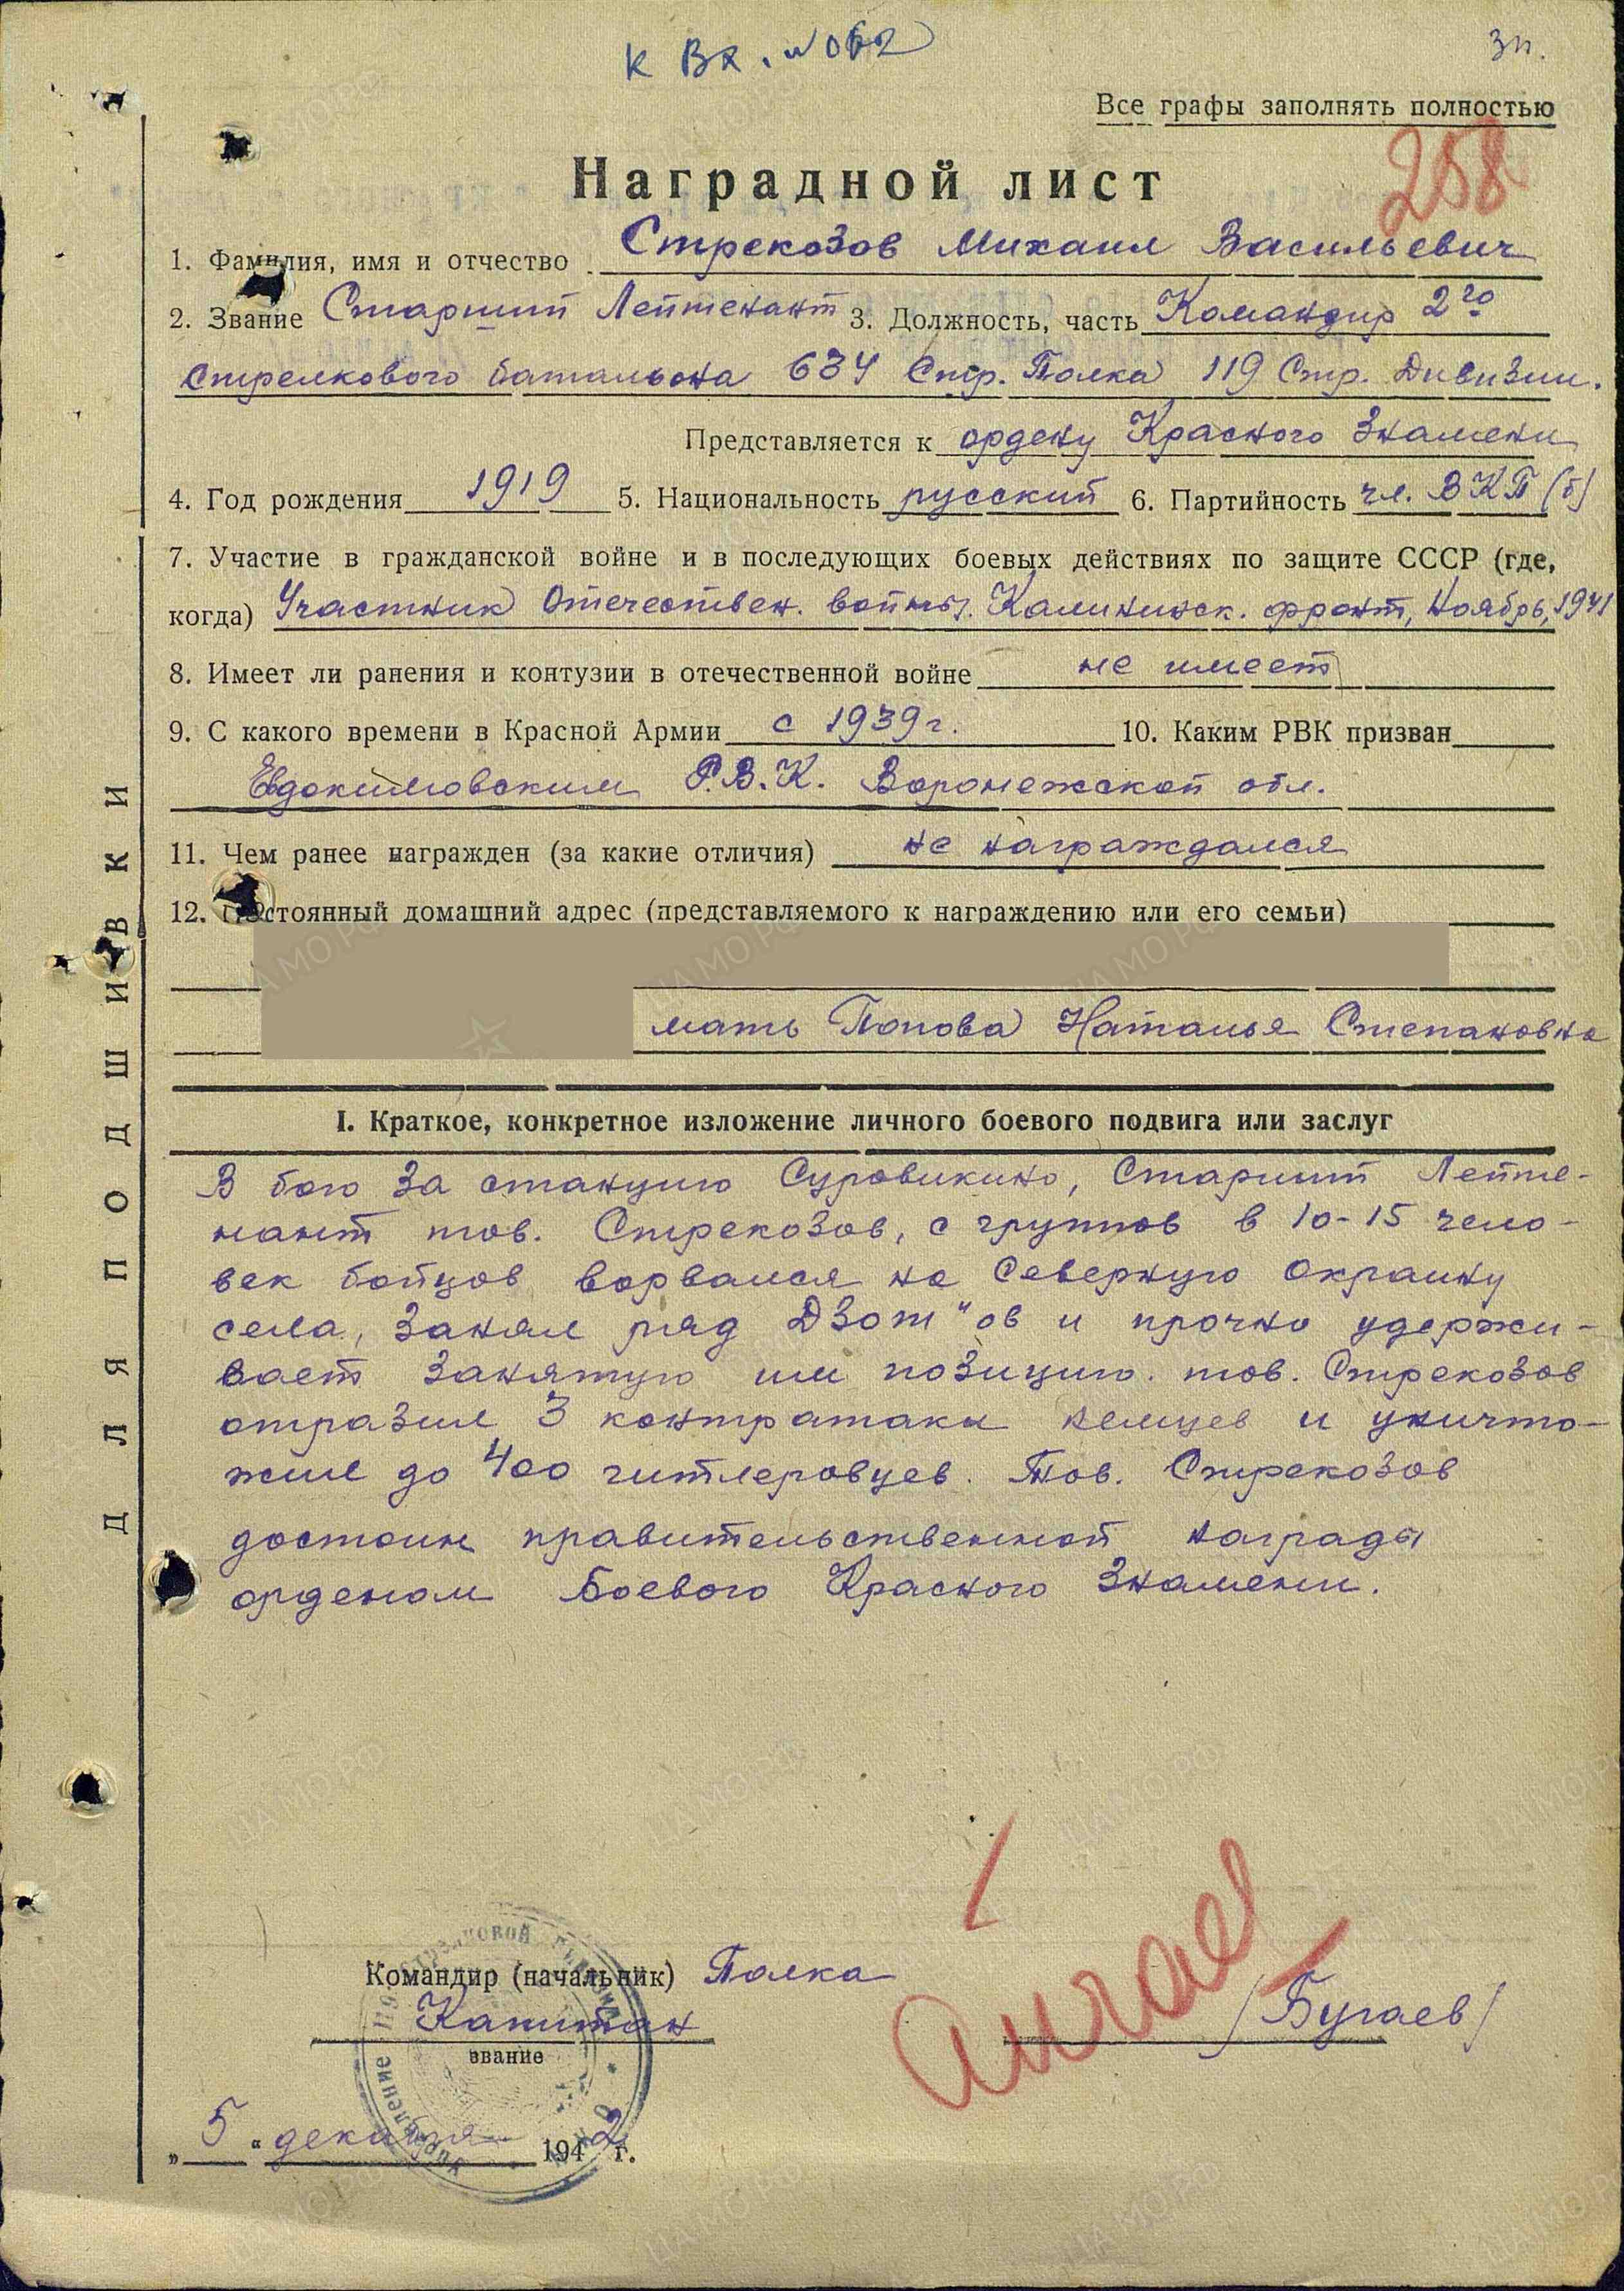 к Вх. №062
3п.
Все графы заполнять полностью
258
Наградной лист
1. Фамилия, имя и отчество Стрекозов Михаил Васильевич
2. Звание Старший Лейтенант 3. Должность, часть Командир 2го
стрелкового батальона 634 Стр. Полка 119 Стр. Дивизии.
Представляется к ордену Красного Знамени
4. Год рождения 1919 5. Национальность русский 6. Партийность чл. ВКП(б)
7. Участие в гражданской войне и в последующих боевых действиях по защите СССР (где,
когда) Участник Отечествен. войны. Калининск. фронт, Ноябрь, 1941
8. Имеет ли ранения и контузии в отечественной войне не имеет
9. С какого времени в Красной Армии с 1939 г. 10. Каким РВК призван
Евдокимовским Р.В.К. Воронежской обл.
11. Чем ранее награжден (за какие отличия) не награждался
12. Постоянный домашний адрес (представляемого к награждению или его семьи)
мать Попова Наталья Степановна
I. Краткое, конкретное изложение личного боевого подвига или заслуг
В бою за станцию Суровикино, Старший Лейте-
нант тов. Стрекозов, с группов в 10-15 чело-
век бойцов ворвался на Северную окраину
села, занял ряд ДЗот"ов и прочно удержи-
вает занятую им позицию. тов. Стрекозов
отразил 3 контратаки немцев и уничто-
жил до 400 гитлеровцев. Тов. Стрекозов
достоин правительственной награды
орденом Боевого Красного Знамени.
Командир (начальник) Полка
Капитан
/Бугаев/
звание
„5" декабря 1942 г.
ДЛЯ ПОДШИВКИ